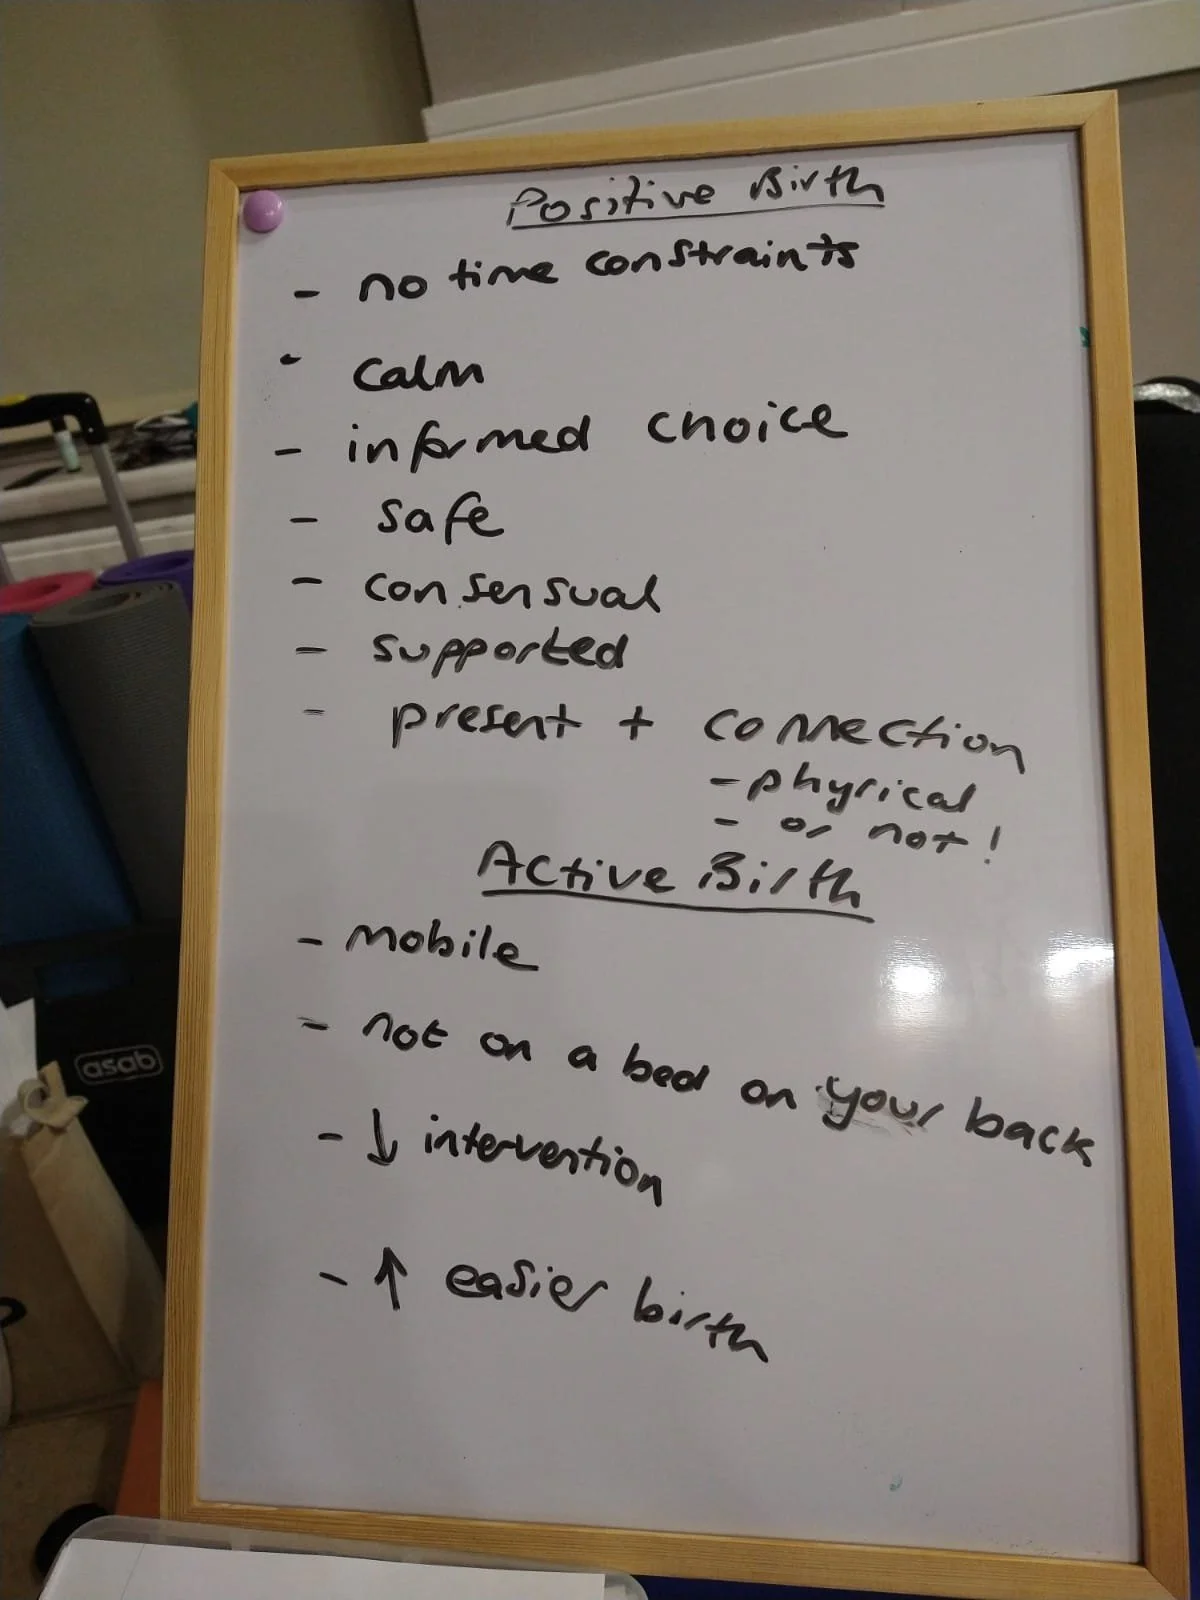 Positive Birth
- no time constraints
- calm
- informed choice
- safe
- consensual
- supported
- present + connection
- physical
- or not!
Active Birth
- mobile
- not on a bed on your back
- ↓ intervention
- ↑ easier birth
asab